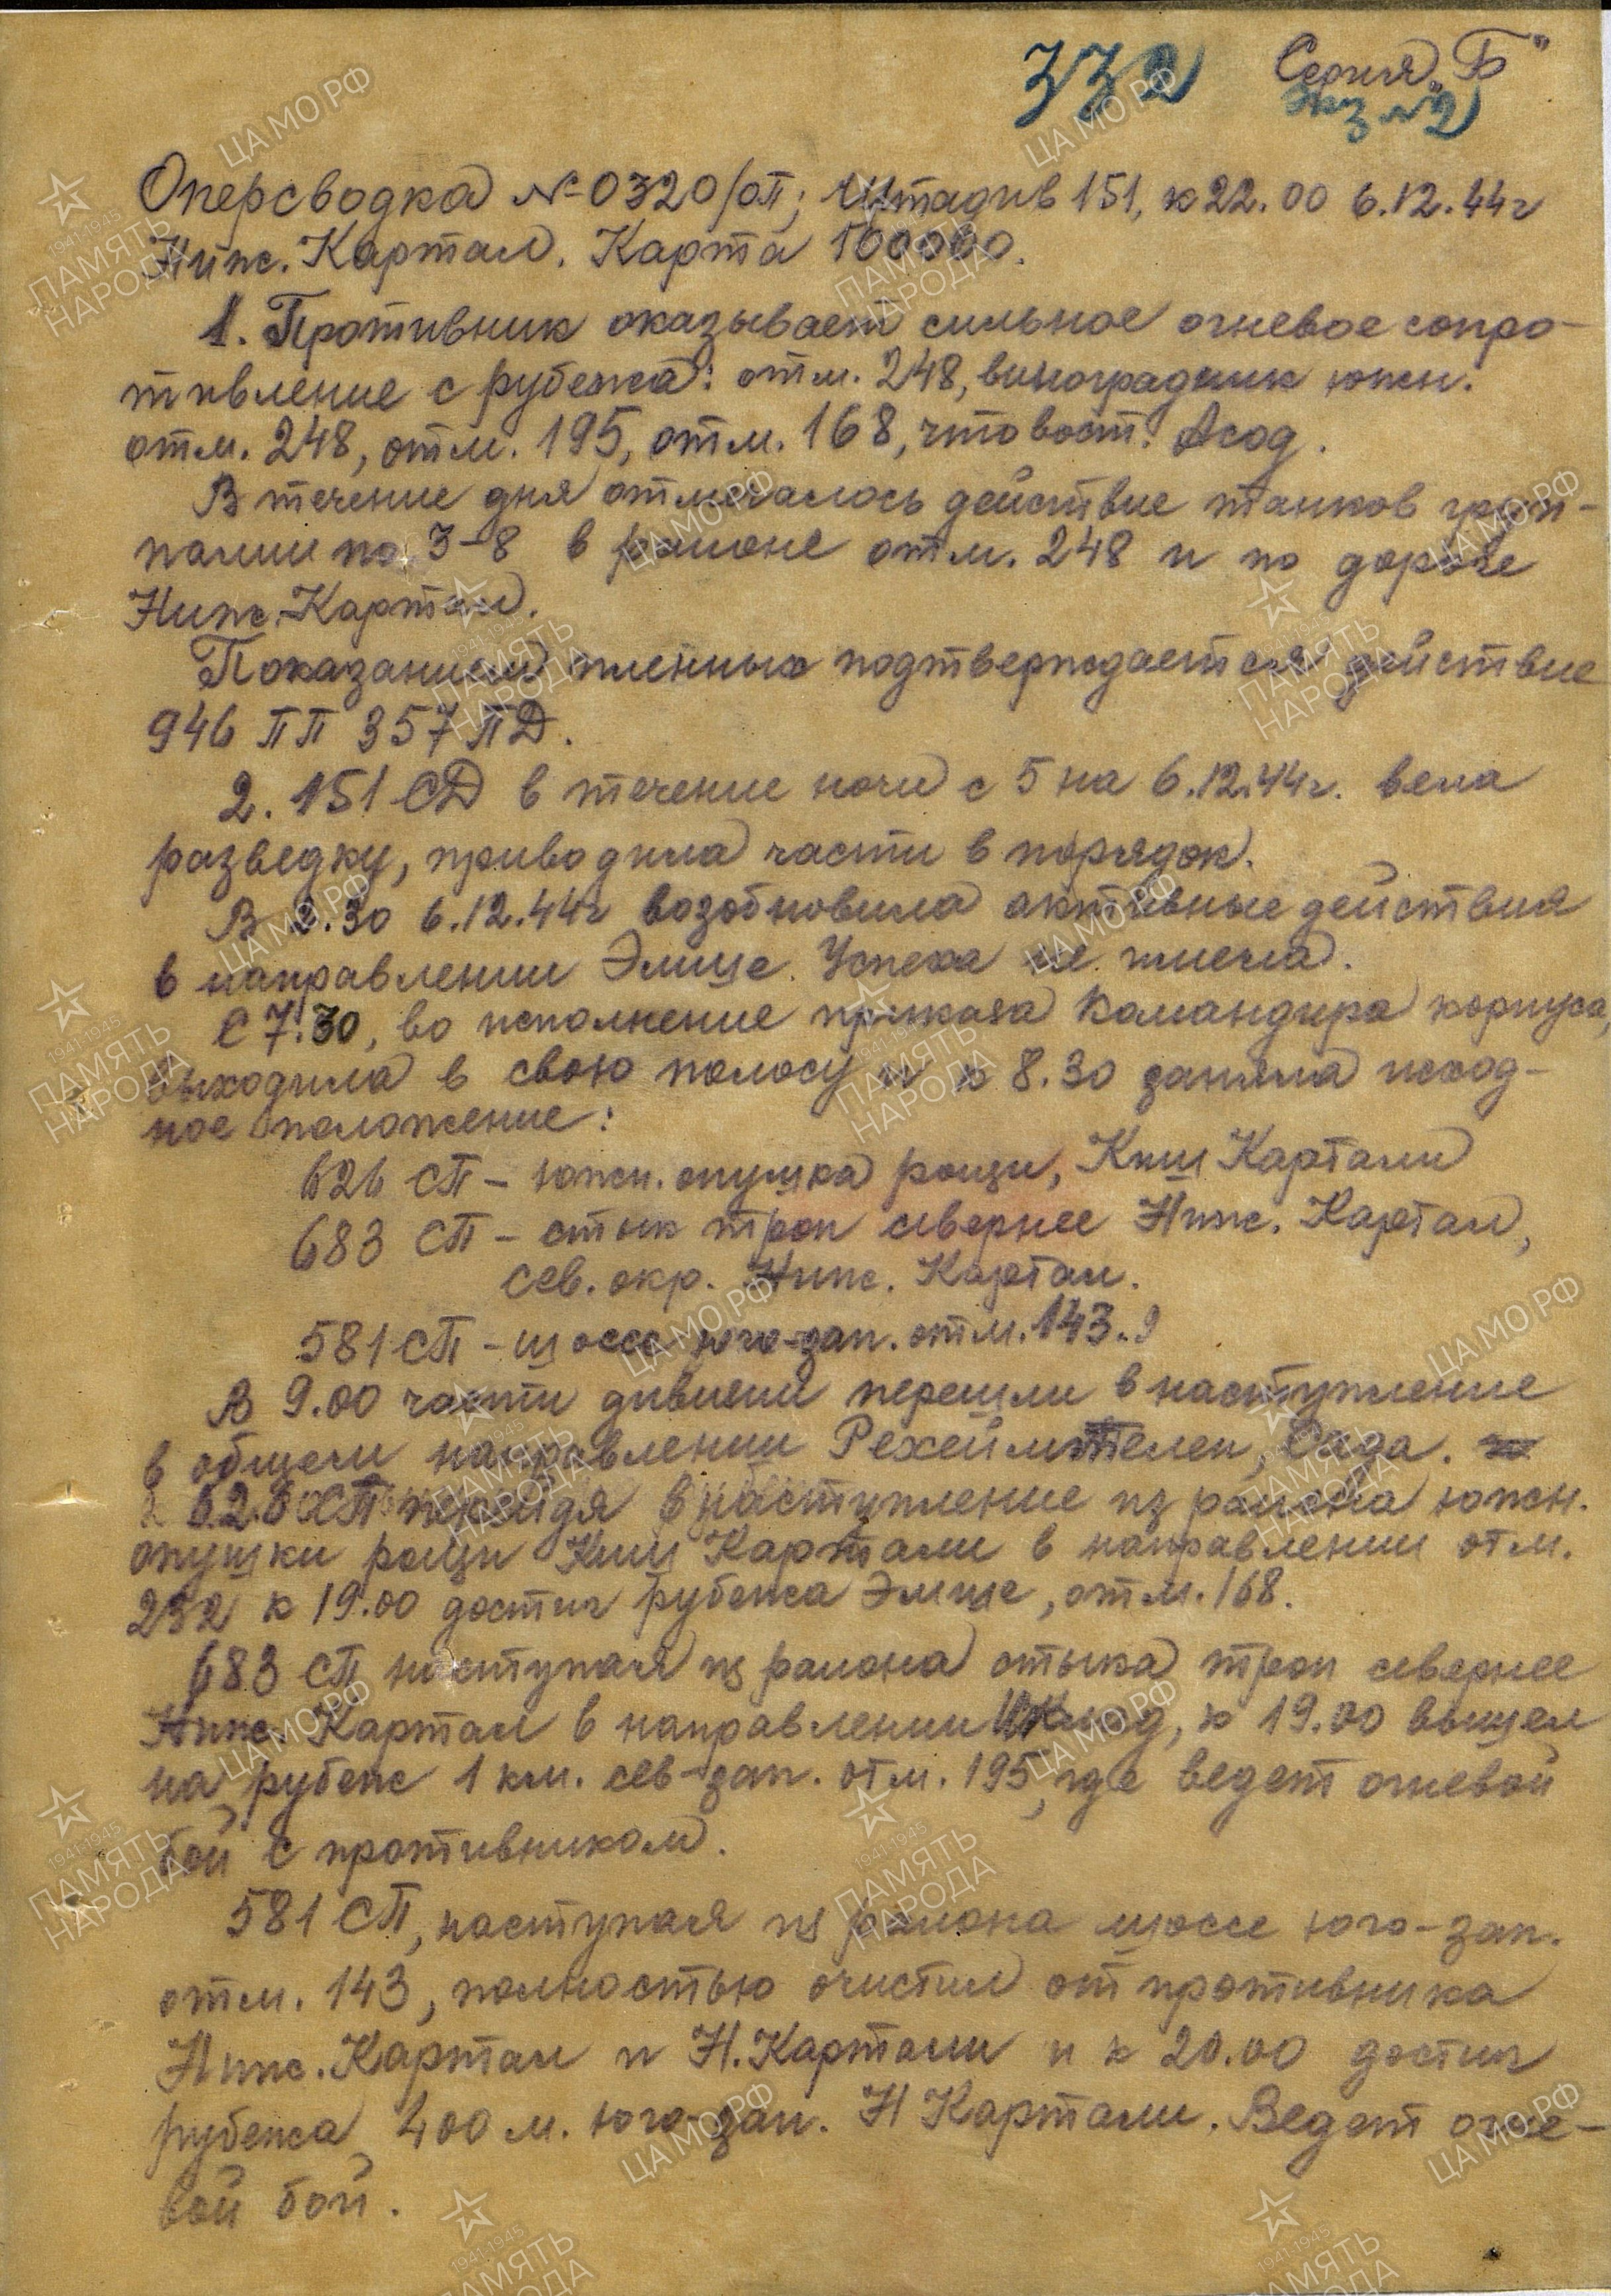 332 Серия „Б"
экз №2
Оперсводка №0320/оп; Штадив 151, к 22.00 6.12.44г
Ниж. Картал. Карта 100000.
1. Противник оказывает сильное огневое сопро-
тивление с рубежа: отм. 248, виноградник южн.
отм. 248, отм. 195, отм. 168, что вост. Асод.
В течение дня отмечалось действие танков груп-
пами по 3-8 в районе отм. 248 и по дороге
Ниж. Картал.
Показанием пленных подтверждается действие
946 ПП 357 ПД.
2. 151 СД в течение ночи с 5 на 6.12.44г. вела
разведку, приводила части в порядок.
В .30 6.12.44г возобновила активные действия
в направлении Эмише. Успеха не имела.
С 7.30, во исполнение приказа командира корпуса,
выходила в свою полосу и к 8.30 заняла исход-
ное положение:
626 СП – южн. опушка рощи, Киш Картали
683 СП – стык троп севернее Ниж. Картал,
сев. окр. Ниж. Картал.
581 СП – шоссе юго-зап. отм. 143.
В 9.00 части дивизии перешли в наступление
в общем направлении Рехеймтелеп, Сада.
626 СП перейдя в наступление из района южн.
опушки рощи Киш Картали в направлении отм.
232 к 19.00 достиг рубежа Эмише, отм. 168.
683 СП наступая из района стыка троп севернее
Ниж. Картал в направлении к 19.00 вышел
на рубеж 1 км. сев-зап. отм. 195, где ведет огневой
бой с противником.
581 СП, наступая из района шоссе юго-зап.
отм. 143, полностью очистил от противника
Ниж. Картал и Н. Картали и к 20.00 достиг
рубежа 400 м. юго-зап. Н Картали. Ведет огне-
вой бой.
ЦА МО РФ
1941-1945
ПАМЯТЬ
НАРОДА